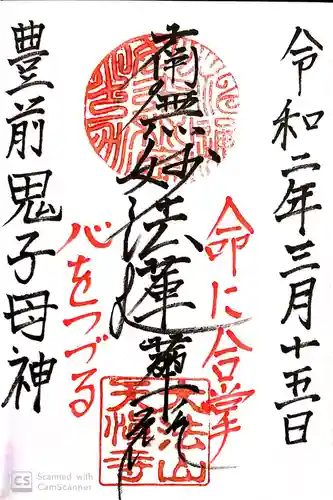 令和二年三月十五日
命に合掌
南無妙法蓮華経
心をつづる
豊前鬼子母神
法山
天懌寺
CS Scanned with
CamScanner